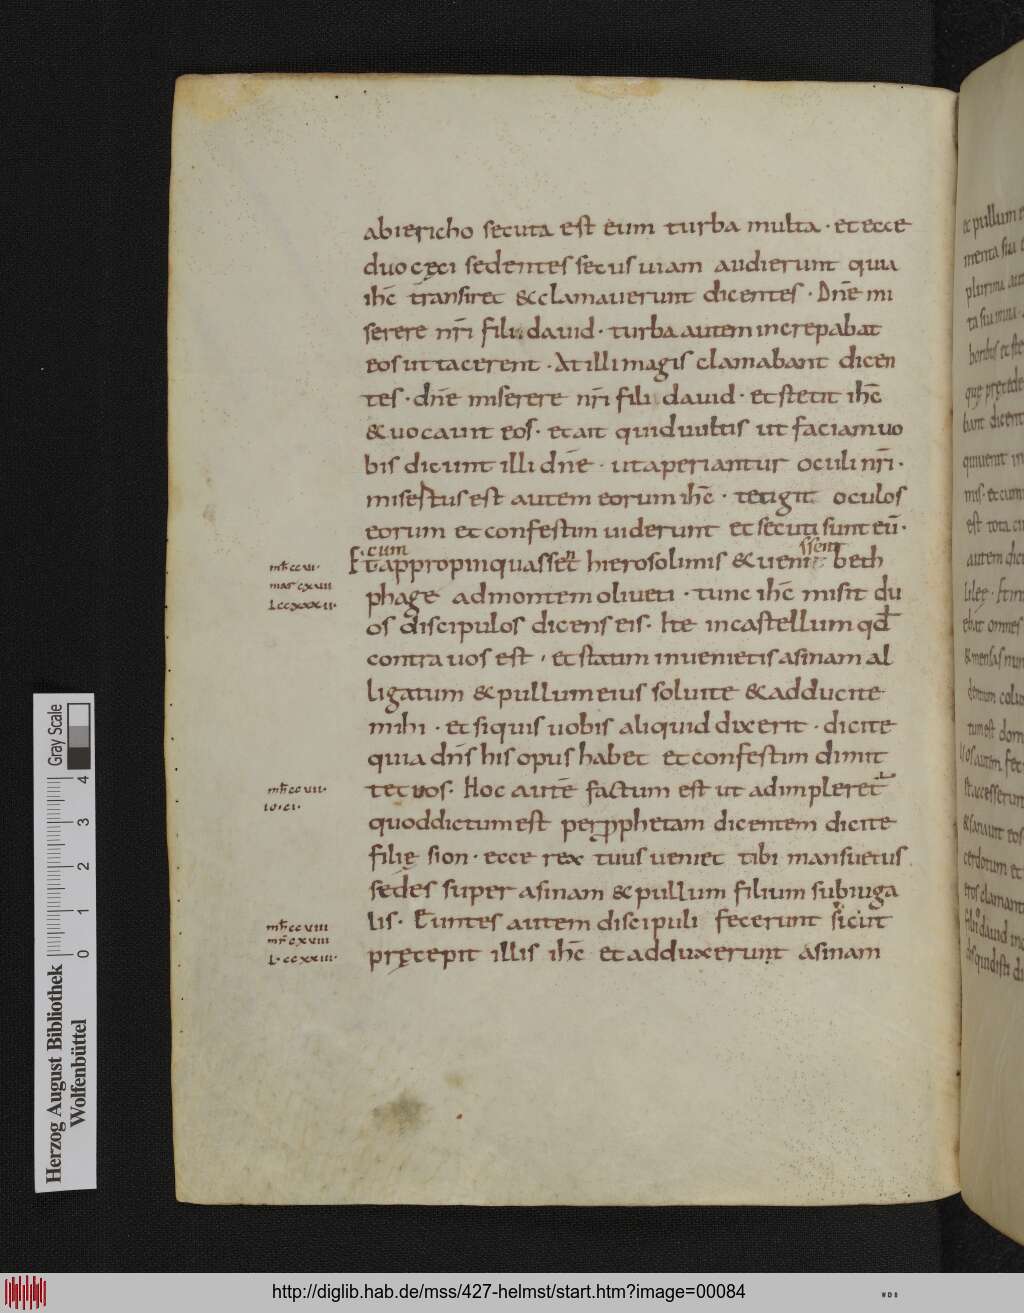 abiericho secuta est eum turba multa · et ecce
duo cęci sedentes secus uiam audierunt quia
ihc̄ trānsiret &clamauerunt dicentes · Dn̄e mi
serere nr̄i fili dauid · turba autem increpabat
eos ut tacerent · At illi magis clamabant dicen
tes · dn̄e miserere nr̄i fili dauid · et stetit ihc̄
&uocauit eos · et ait quid uultis ut faciam uo
bis dicunt illi dn̄e · ut aperiantur oculi nr̄i ·
misertus est autem eorum ihc̄ · tetigit oculos
eorum et confestim uiderunt et secuti sunt eū ·
cum ssent
Et appropinquasset hierosolimis &uenit beth
phage ad montem oliueti · tunc ihc̄ misit du
os discipulos dicens eis · Ite in castellum qd̄
contra uos est · et statim inuenietis asinam al
ligatum &pullum eius soluite &adducite
mihi · et siquis uobis aliquid dixerit · dicite
quia dn̄s his opus habet et confestim dimit
tet uos · Hoc autē factum est ut adimpleret
quod dictum est per pphetam dicentem dicite
filię sion · ecce rex tuus ueniet tibi mansuetus
sedes super asinam &pullum filium subiuga
lis · Euntes autem discipuli fecerunt sicut
pręcepit illis ihc̄ et adduxerunt asinam
mt̄ ccvi ·
mar cxviii
L ccxxxii ·
mt̄ ccvii ·
io · ci ·
mt̄ ccviii
mr̄ cxviii
L · ccxxiii ·
Gray Scale
0 1 2 3 4
Herzog August Bibliothek
Wolfenbüttel
http://diglib.hab.de/mss/427-helmst/start.htm?image=00084